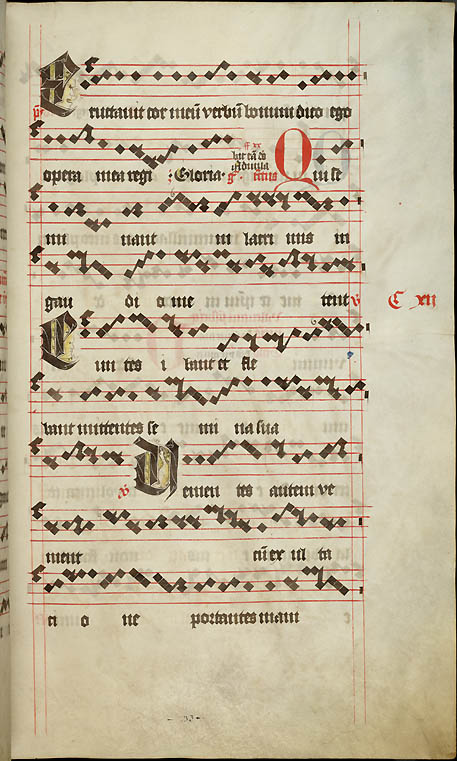 Eructauit cor meū verbū bonum dico ego
opera mea regi Gloria g Qui se
mi nant in lacri mis in
gau di o me tent v C xii
Eun tes i bant et fle
bant mittentes se mi na sua
v Venien tes autem ve
nient cū ex ul ta
ti o ne portantes mani